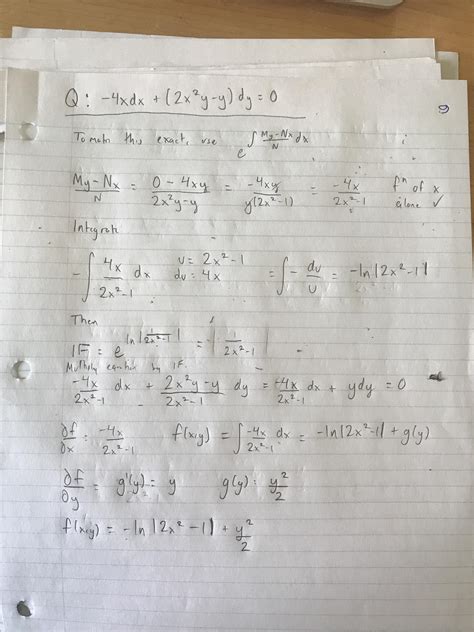 Q: -4xdx + (2x²y-y) dy = 0
9
To make this exact, use e^∫ (My-Nx)/N dx
(My-Nx)/N = (0-4xy)/(2x²y-y) = -4xy/(y(2x²-1)) = -4x/(2x²-1) fⁿ of x alone ✓
Integrate
-∫ 4x/(2x²-1) dx u = 2x²-1 du = 4x = ∫ - du/u = -ln|2x²-1|
Then
IF = e^ln|1/(2x²-1)| = |1/(2x²-1)|
Multiply equation by IF
-4x/(2x²-1) dx + (2x²y-y)/(2x²-1) dy = -4x/(2x²-1) dx + ydy = 0
∂f/∂x = -4x/(2x²-1) f(x,y) = ∫ -4x/(2x²-1) dx = -ln|2x²-1| + g(y)
∂f/∂y = g'(y) = y g(y) = y²/2
f(x,y) = -ln|2x²-1| + y²/2